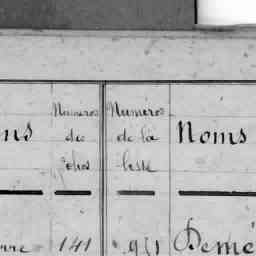 Numéros Numéros
ns des de la Noms
folios liste
rre 141 951 Demé